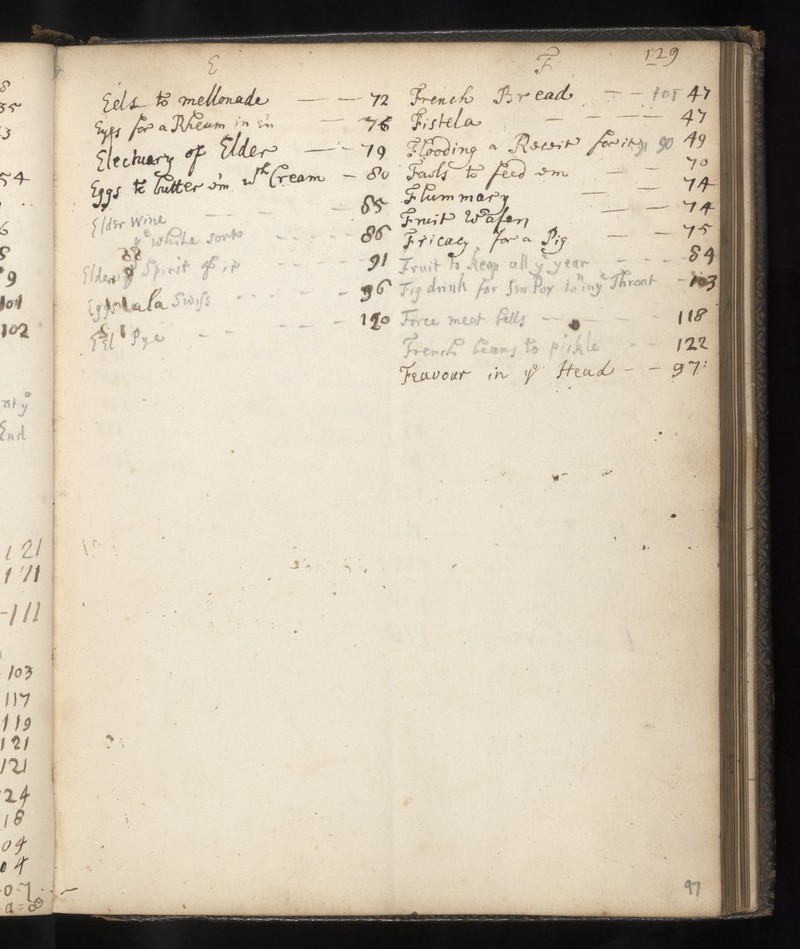 E
Eels to mellonade — — 72
Eyes for a Rheum in em — 76
Electuary of Elder — - 79
Eggs to butter em wth Cream - 80
Elder Wine - - - 85
ye white sort - - - - 86
88
Elder Spirit of it - - - - 91
Eggs a la Swiss - - - - 96
Eel Pye - - - - 120
F 129
French Bread - - 101 47
Fistela - - - - 47
Flooding a Receit for it 91 90 49
Fowls to feed em - - 70
Flummary - - 74
Fruit Wafers 74
Fricacy for a Pig - - 75
Fruit to keep all ye year - - - - 84
Fig drink for Sm Pox wn in ye Throat - 103
Force meat bells — - - 118
French beans to pickle - - 122
Feavour in ye Head - - 97:
97
35
54
6
9
101
102
End
121
111
-111
103
117
119
121
121
24
18
04
04